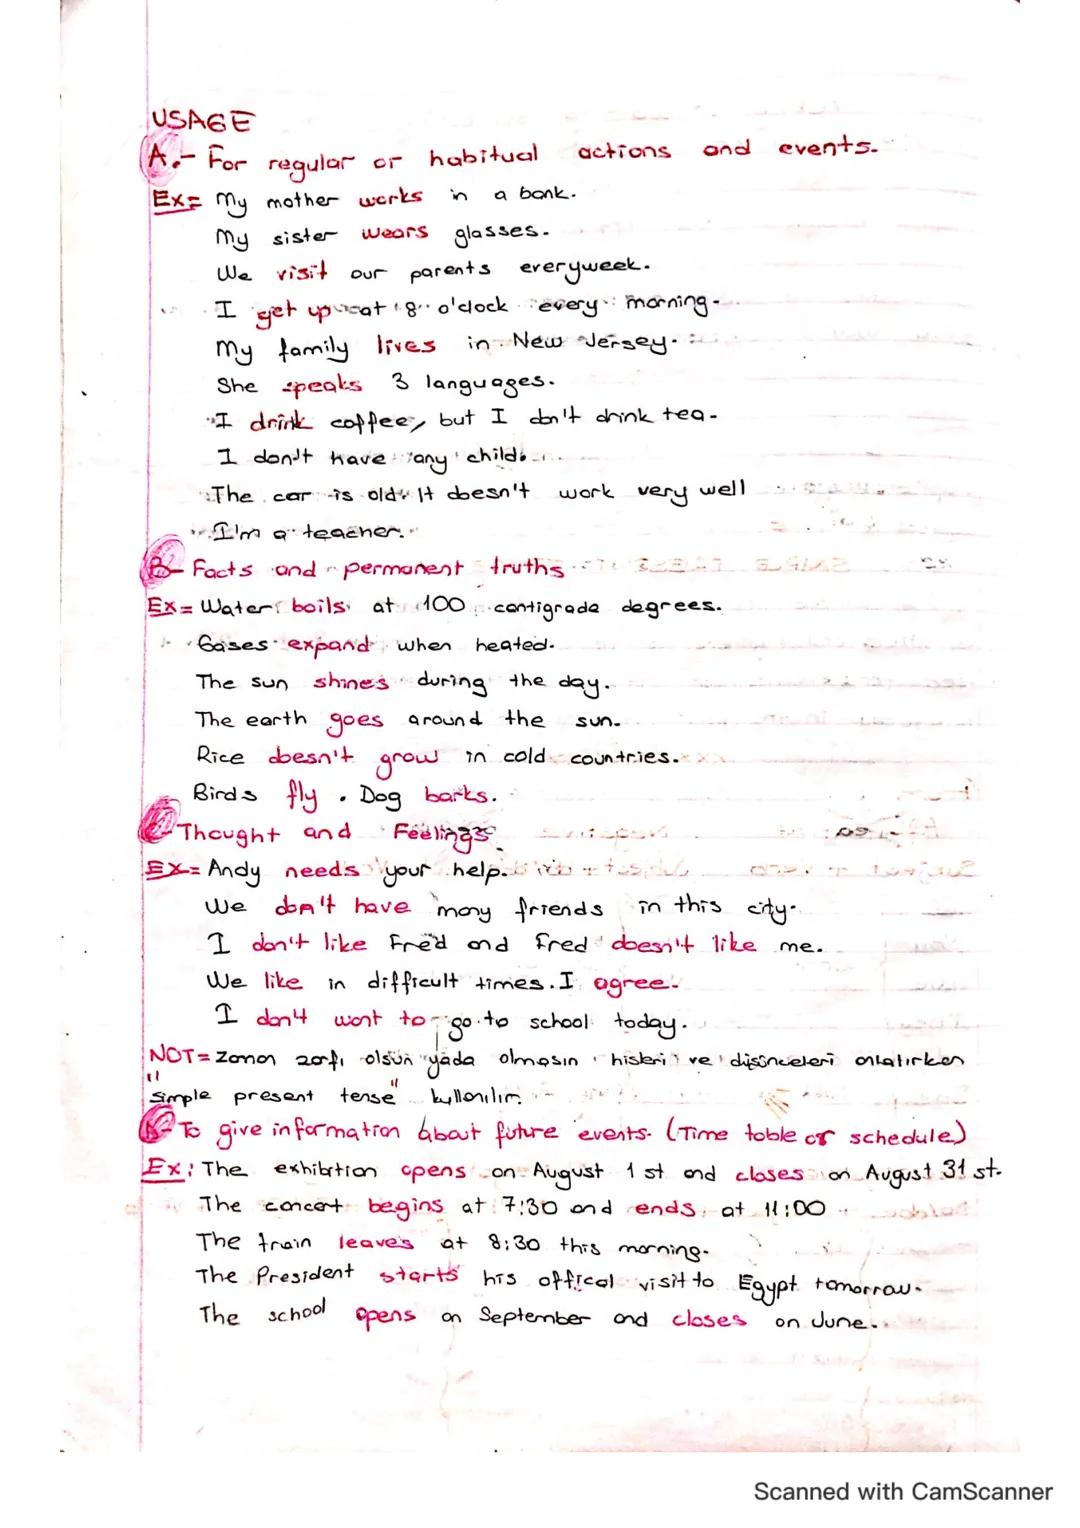 USAGE
A.- For regular or habitual actions and events.
Ex= My mother works in a bank.
My sister wears glasses.
We visit our parents everyweek.
I get up at 8 o'clock every morning.
My family lives in New Jersey.
She speaks 3 languages.
I drink coffee, but I don't drink tea.
I don't have any child.
The car is old. It doesn't work very well
I'm a teacher.
B- Facts and permanent truths
Ex= Water boils at 100 centigrade degrees.
Gases expand when heated.
The sun shines during the day.
The earth goes around the sun.
Rice doesn't grow in cold countries.
Birds fly. Dog barks.
C- Thought and Feelings
Ex= Andy needs your help.
We don't have many friends in this city.
I don't like Fred and Fred doesn't like me.
We like in difficult times. I agree.
I don't want to go to school today.
NOT= Zaman zarfı olsun yada olmasın hisleri ve düşünceleri anlatırken
"Simple present tense" kullanılır.
To give information about future events. (Time table or schedule)
Ex: The exhibition opens on August 1 st and closes on August 31 st.
The concert begins at 7:30 and ends at 11:00
The train leaves at 8:30 this morning.
The President starts his offical visit to Egypt tomorrow.
The school opens on September and closes on June.
Scanned with CamScanner